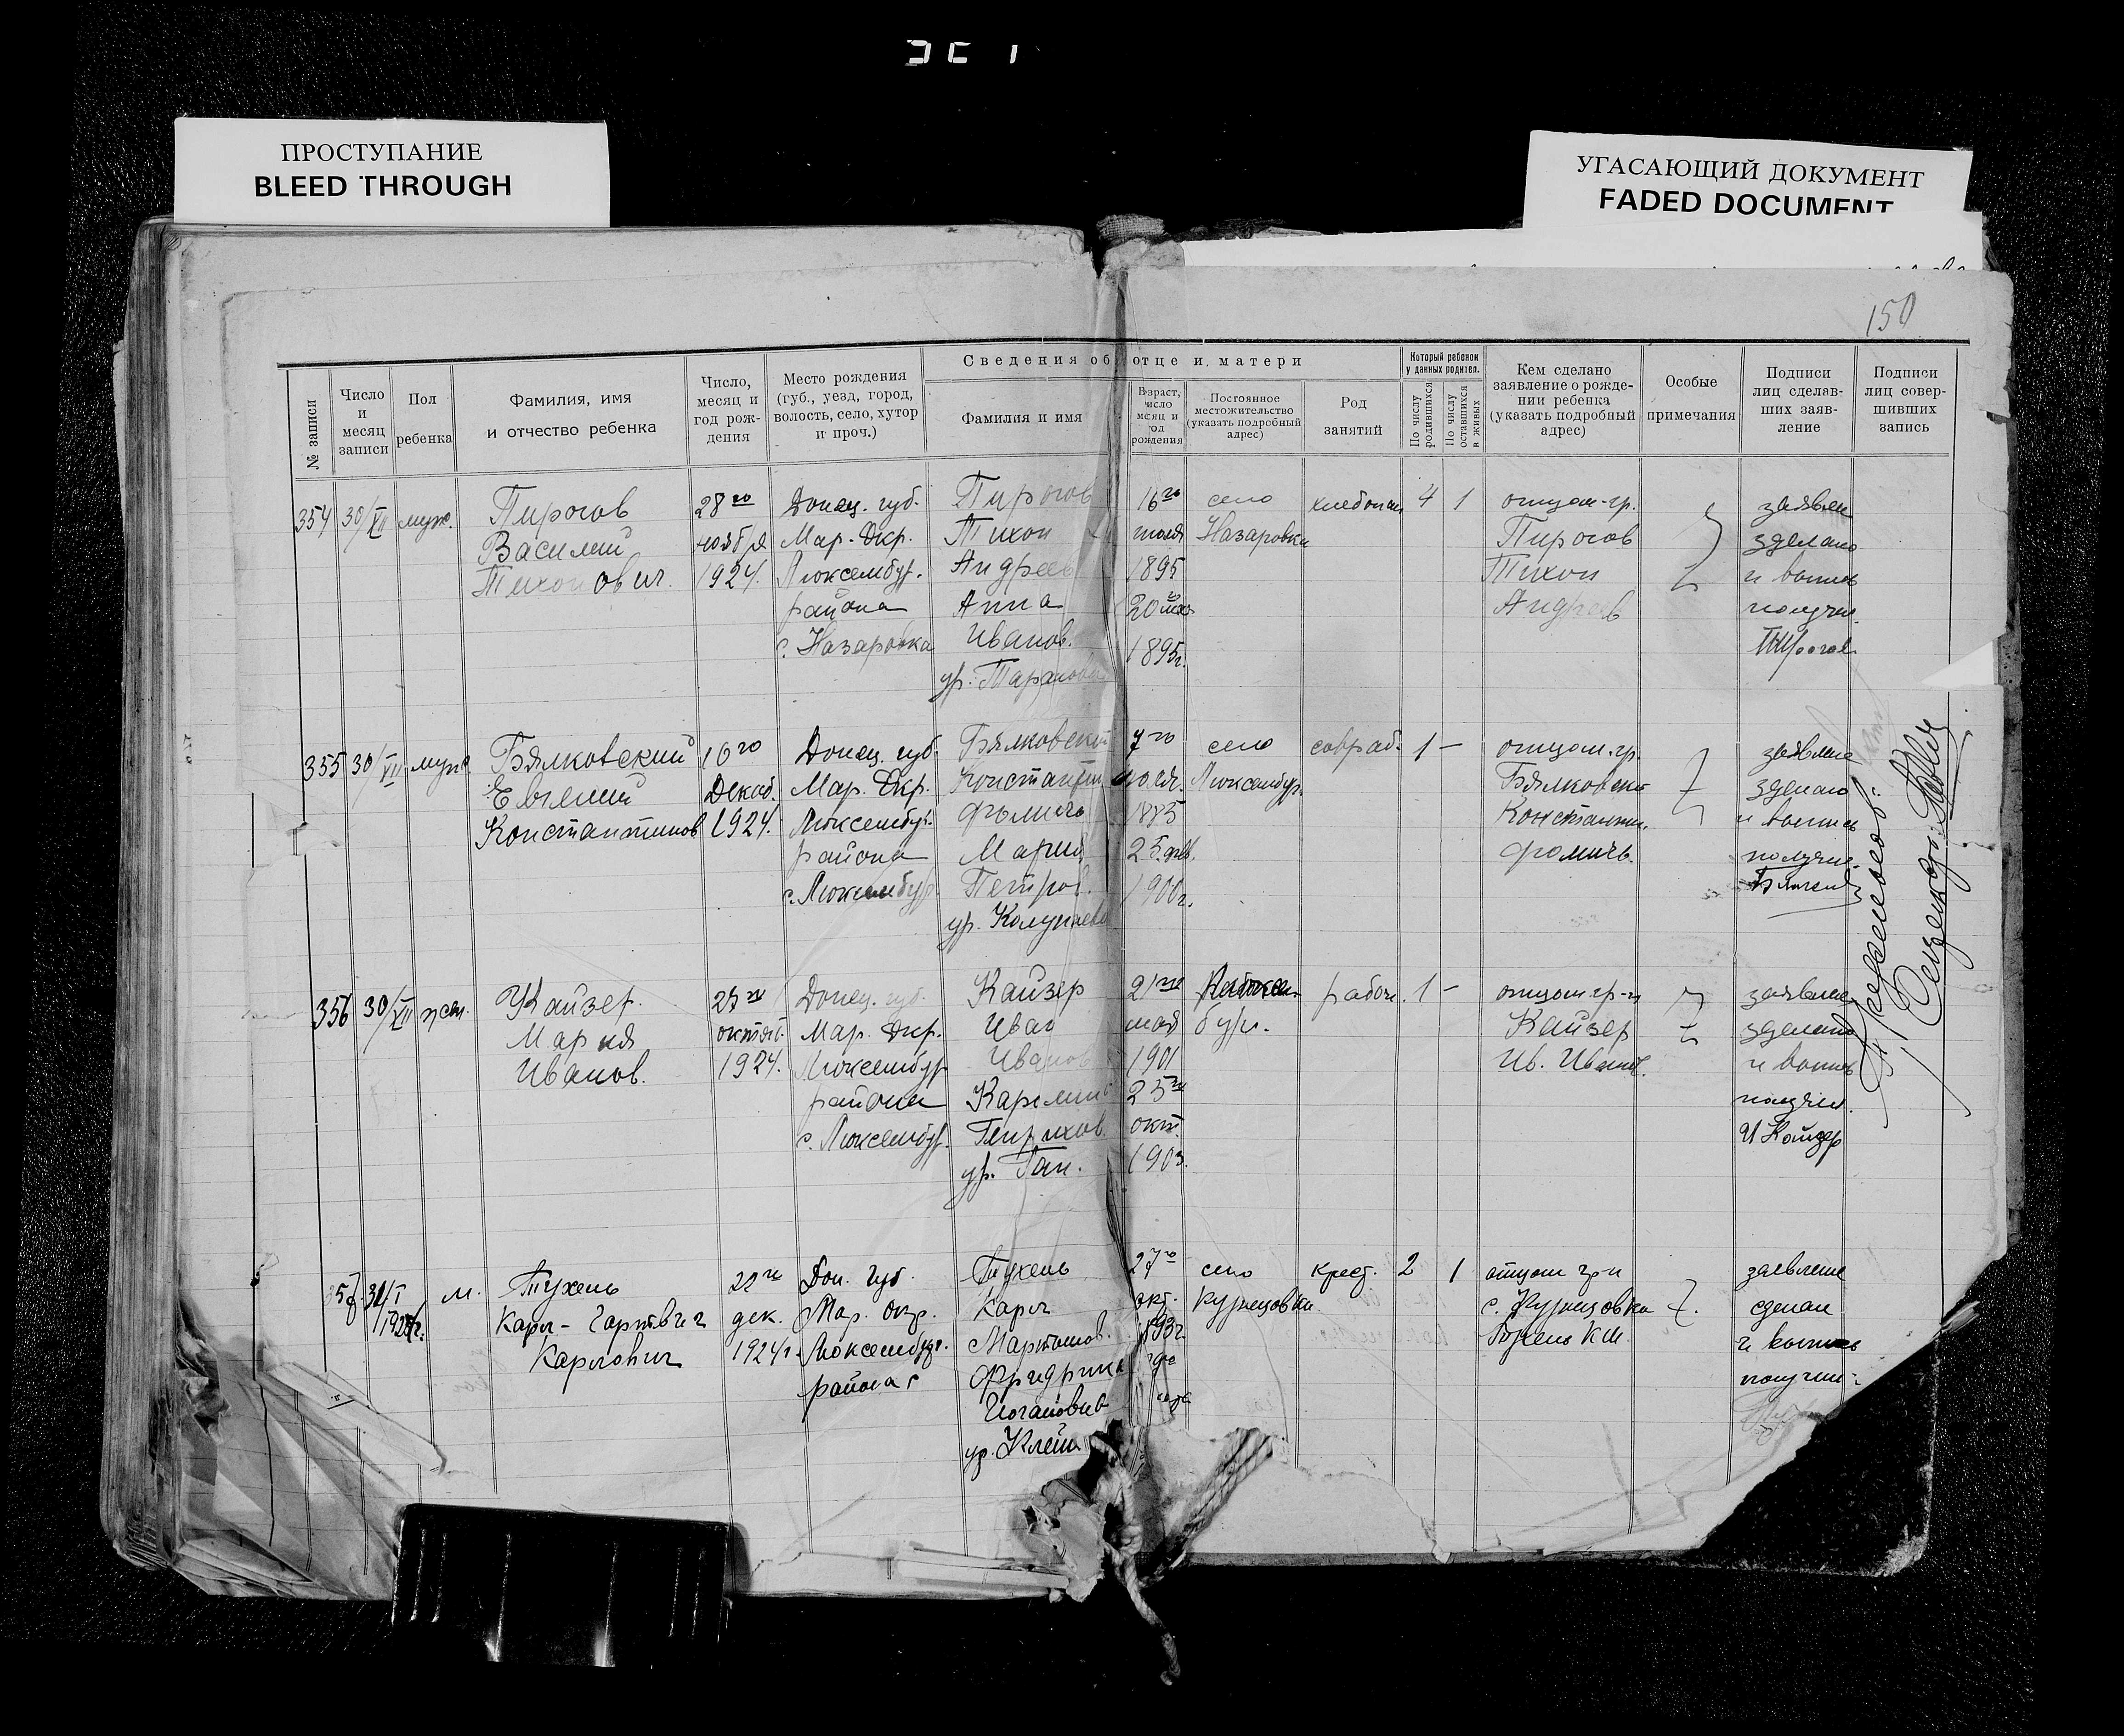 ПРОСТУПАНИЕ
BLEED THROUGH
УГАСАЮЩИЙ ДОКУМЕНТ
FADED DOCUMENT
150
№ записи
Число и месяц записи
Пол ребенка
Фамилия, имя и отчество ребенка
Число, месяц и год рождения
Место рождения (губ., уезд, город, волость, село, хутор и проч.)
Сведения об отце и матери
Фамилия и имя
Возраст, число месяц и год рождения
Постоянное местожительство (указать подробный адрес)
Род занятий
Который ребенок у данных родител.
По числу родившихся
По числу оставшихся в живых
Кем сделано заявление о рождении ребенка (указать подробный адрес)
Особые примечания
Подписи лиц сделавших заявление
Подписи лиц совершивших запись
354 30/XII муж. Пирогов 28го Донец. губ. Пирогов 16го село хлебопаш 4 1 отцом-гр. заявлен
Василий ноября Мар. Окр. Тихон июля Назаровка Пирогов зделано
Тихонович. 1924. Люксембур. Андреев 1895 Тихон и выпись
района Анна 20 Андреев получил.
с. Назаровка Иванов. 1895г. Пирогов
ур. Таранова
355 30/XII муж Бялковский 10го Донец. губ. Бялковский 7го село совраб. 1 – отцом гр. заявление
Евгений Декаб. Мар. Окр. Константин Люксембур. Бялковский зделано
Константинов 1924. Люксембур. Фомичь 1885 Константин. и выпись
района Мария 25 фев. Фомичь. получил.
с. Люксембур. Петров. 1900г.
ур. Колупаева
356 30/XII жен. Кайзер. 25го Донец. губ. Кайзер 21го рабоч. 1 – отцом гр-н заявление
Мария октяб. Мар. Окр. Иван мая бург. Кайзер зделано
Иванов. 1924. Люксембур Иванов 1901 Ив. Иванов. и выпись
района 25го получил.
с. Люксембур. окт. И Кайзер
ур. Ган. 1903.
357 31/I м. Тухель 22го Дон. Губ. Тухель 27го село крест. 2 1 отцом гр-н заявление
Карл- дек. Мар. окр. Карл окт. Кузнецовка с. Кузнецовка сделан
Карлович 1924г. Люксембург. Мартынов. и выпись
района с Фридрика получил
Иогановна
ур. Клейн